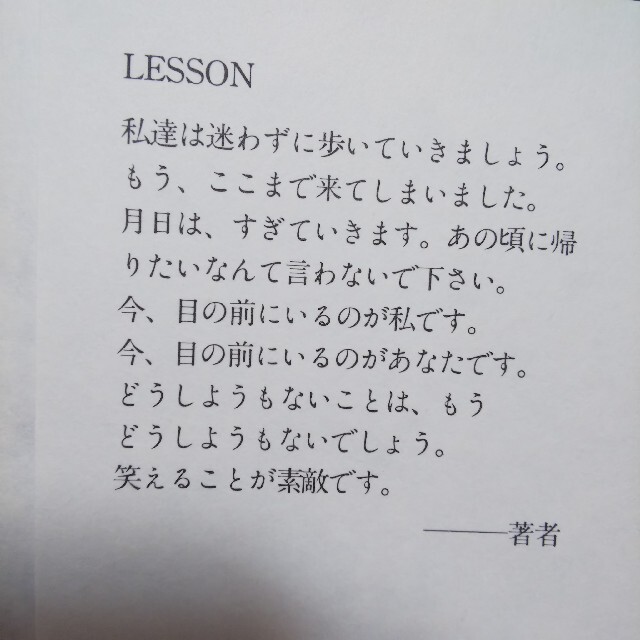 LESSON
私達は迷わずに歩いていきましょう。
もう、ここまで来てしまいました。
月日は、すぎていきます。あの頃に帰
りたいなんて言わないで下さい。
今、目の前にいるのが私です。
今、目の前にいるのがあなたです。
どうしようもないことは、もう
どうしようもないでしょう。
笑えることが素敵です。
——著者